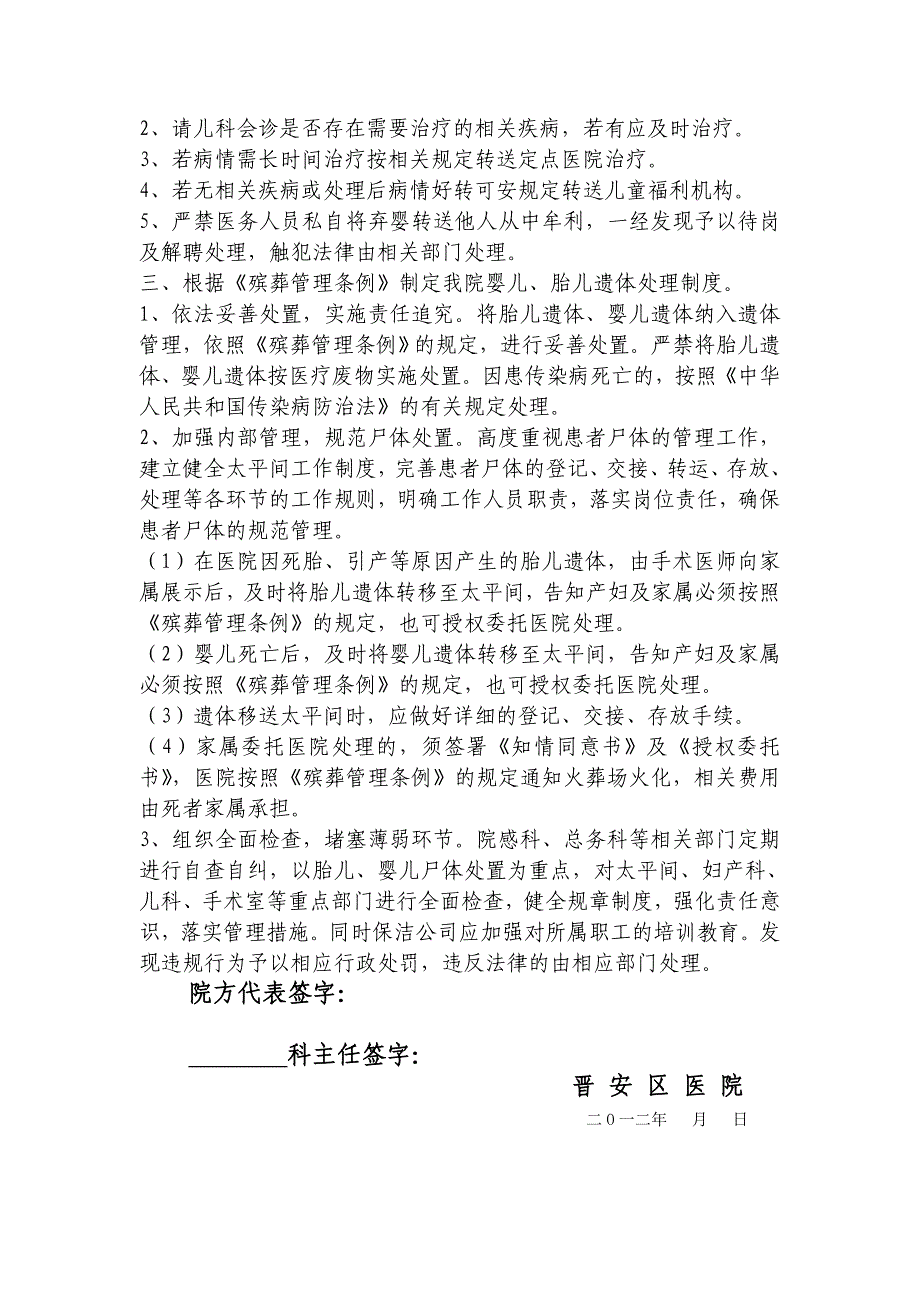 2、请儿科会诊是否存在需要治疗的相关疾病，若有应及时治疗。
3、若病情需长时间治疗按相关规定转送定点医院治疗。
4、若无相关疾病或处理后病情好转可安规定转送儿童福利机构。
5、严禁医务人员私自将弃婴转送他人从中牟利，一经发现予以待岗
及解聘处理，触犯法律由相关部门处理。
三、根据《殡葬管理条例》制定我院婴儿、胎儿遗体处理制度。
1、依法妥善处置，实施责任追究。将胎儿遗体、婴儿遗体纳入遗体
管理，依照《殡葬管理条例》的规定，进行妥善处置。严禁将胎儿遗
体、婴儿遗体按医疗废物实施处置。因患传染病死亡的，按照《中华
人民共和国传染病防治法》的有关规定处理。
2、加强内部管理，规范尸体处置。高度重视患者尸体的管理工作，
建立健全太平间工作制度，完善患者尸体的登记、交接、转运、存放、
处理等各环节的工作规则，明确工作人员职责，落实岗位责任，确保
患者尸体的规范管理。
（1）在医院因死胎、引产等原因产生的胎儿遗体，由手术医师向家
属展示后，及时将胎儿遗体转移至太平间，告知产妇及家属必须按照
《殡葬管理条例》的规定，也可授权委托医院处理。
（2）婴儿死亡后，及时将婴儿遗体转移至太平间，告知产妇及家属
必须按照《殡葬管理条例》的规定，也可授权委托医院处理。
（3）遗体移送太平间时，应做好详细的登记、交接、存放手续。
（4）家属委托医院处理的，须签署《知情同意书》及《授权委托
书》，医院按照《殡葬管理条例》的规定通知火葬场火化，相关费用
由死者家属承担。
3、组织全面检查，堵塞薄弱环节。院感科、总务科等相关部门定期
进行自查自纠，以胎儿、婴儿尸体处置为重点，对太平间、妇产科、
儿科、手术室等重点部门进行全面检查，健全规章制度，强化责任意
识，落实管理措施。同时保洁公司应加强对所属职工的培训教育。发
现违规行为予以相应行政处罚，违反法律的由相应部门处理。
院方代表签字：
________科主任签字：
晋 安 区 医 院
二０一二年 月 日